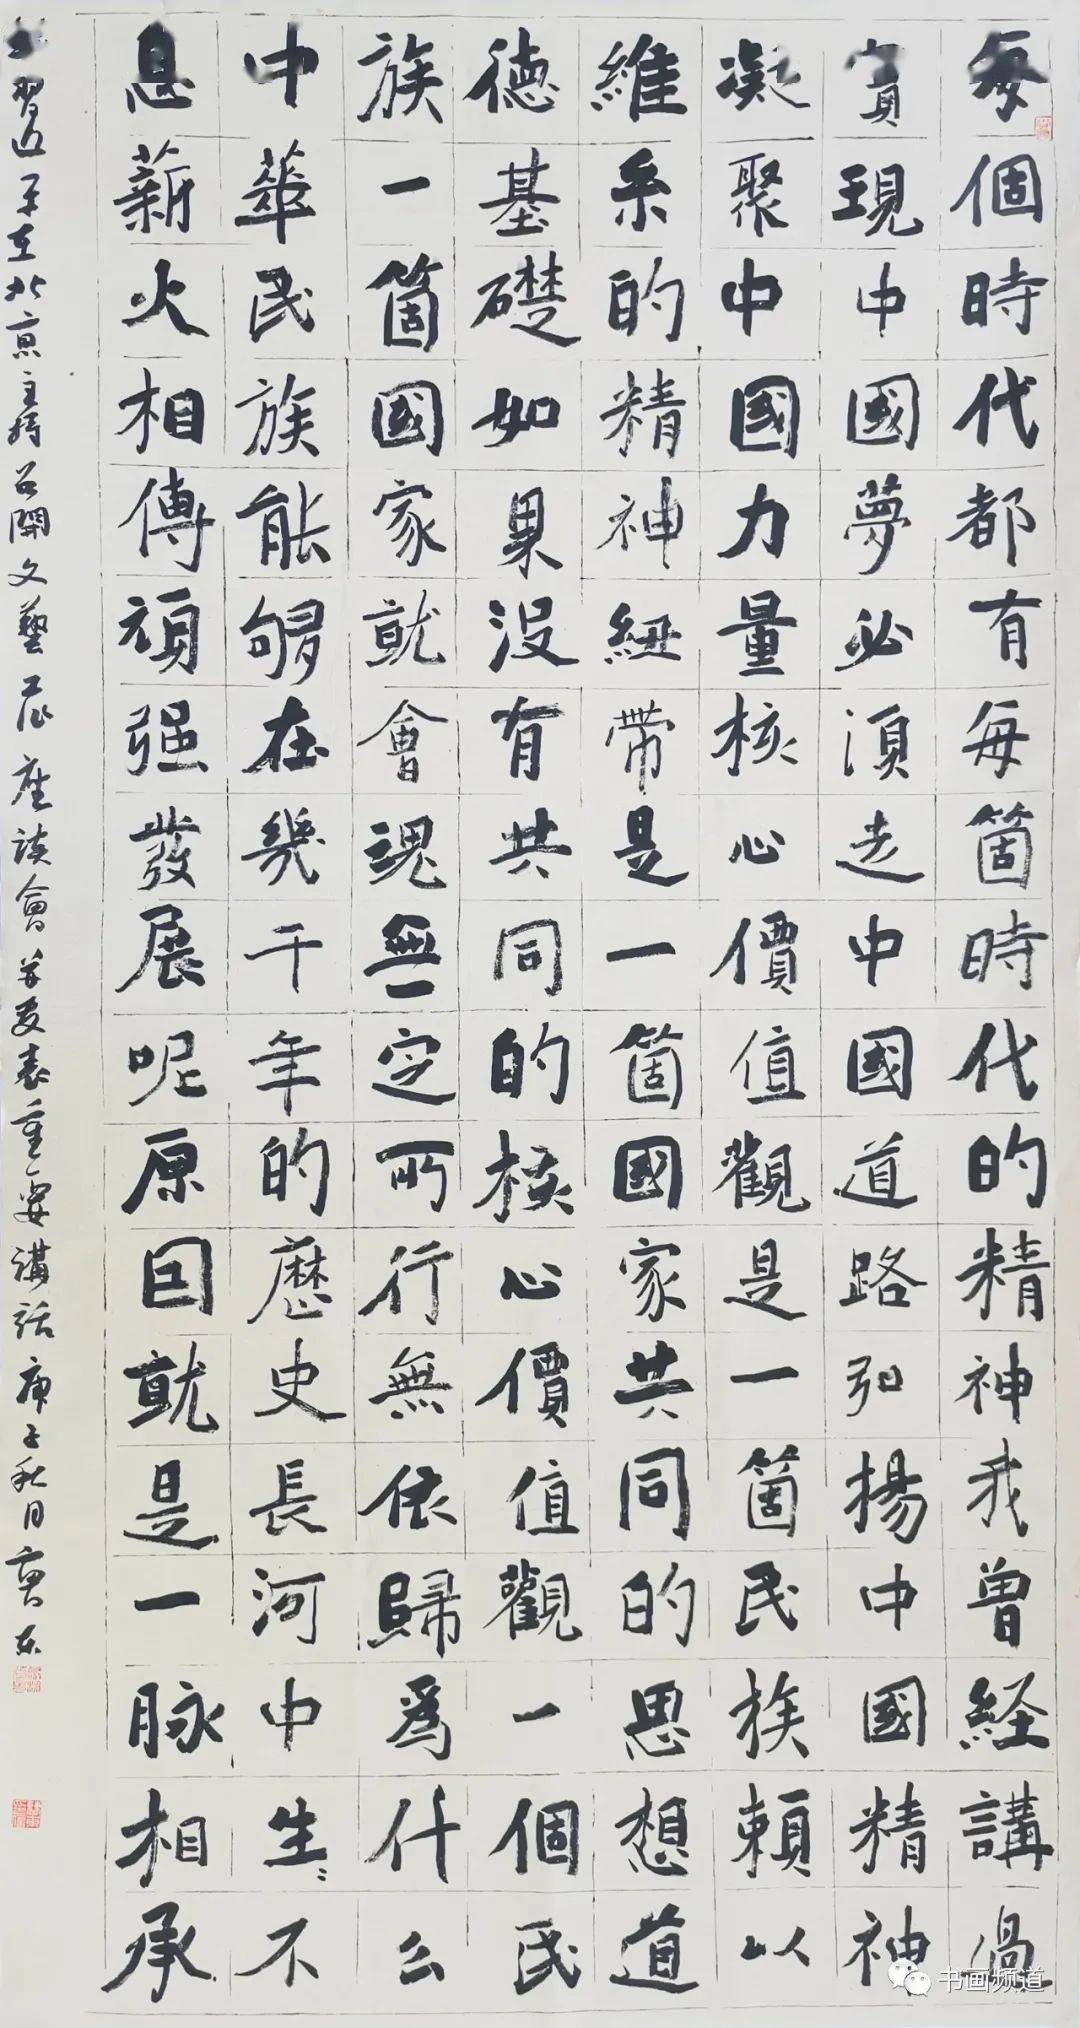 每個時代都有每箇時代的精神我曾經講過
實現中國夢必須走中國道路弘揚中國精神
凝聚中國力量核心價值觀是一箇民族賴以
維系的精神紐帶是一箇國家共同的思想道
德基礎如果没有共同的核心價值觀一個民
族一箇國家就會魂無定所行無依歸爲什么
中華民族能夠在幾千年的歷史長河中生生不
息薪火相傳頑强發展呢原因就是一脉相承
習近平在北京主持召開文藝工作座談會并发表重要講話庚子秋月
书画频道